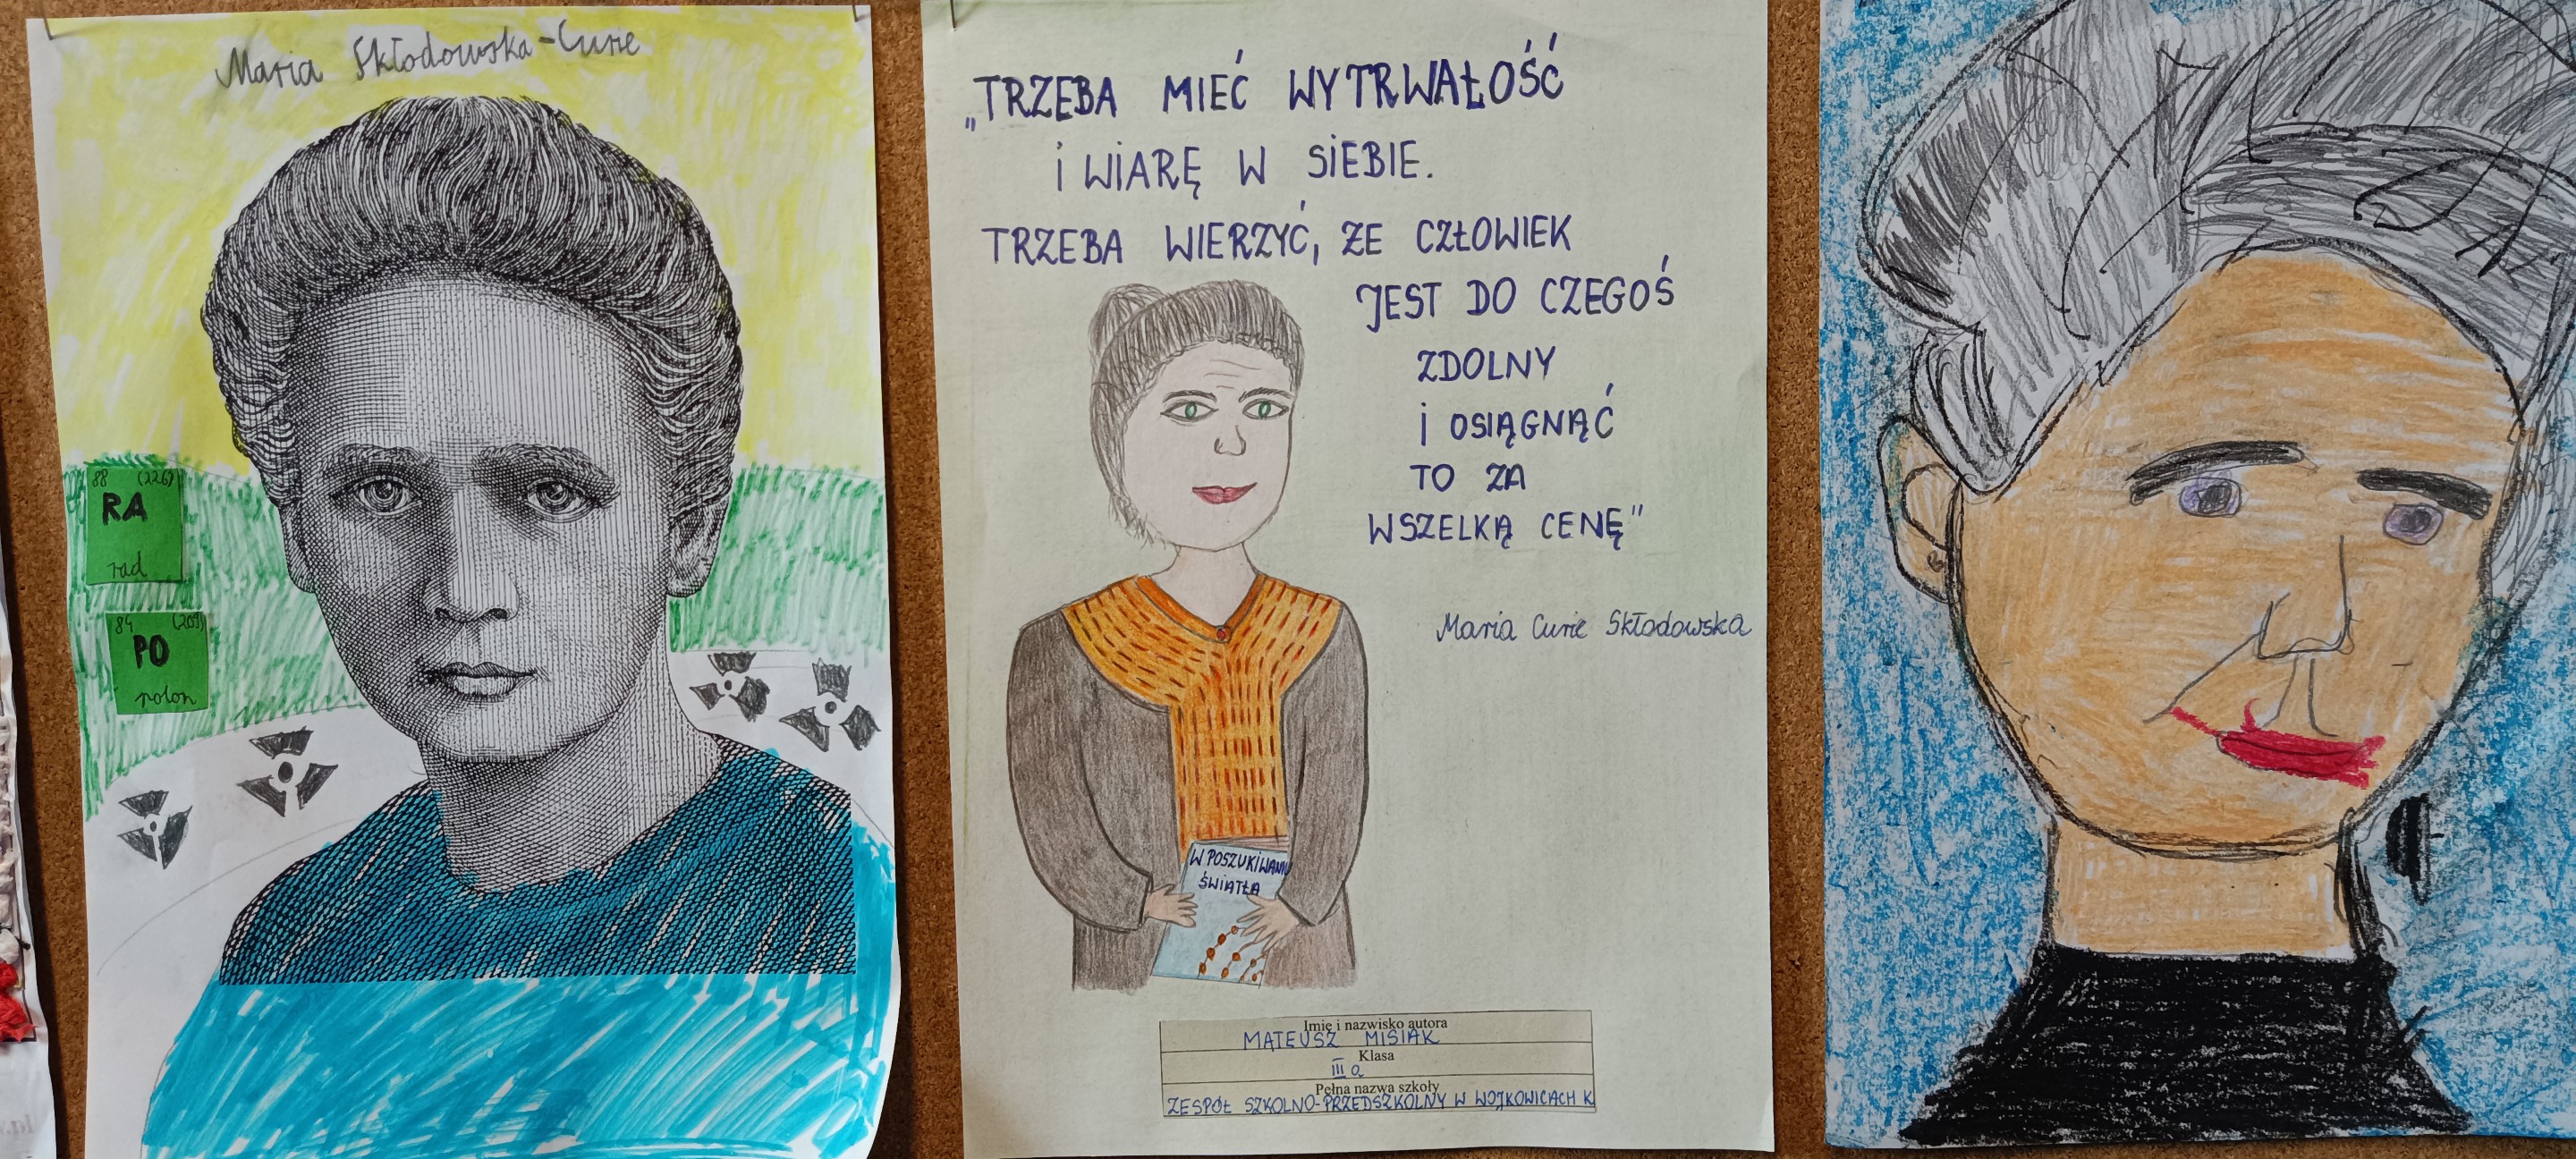 Maria Skłodowska-Curie
88 (226)
RA
rad
84 (209)
PO
polon
„TRZEBA MIEĆ WYTRWAŁOŚĆ
I WIARĘ W SIEBIE.
TRZEBA WIERZYĆ, ŻE CZŁOWIEK
JEST DO CZEGOŚ
ZDOLNY
I OSIĄGNĄĆ
TO ZA
WSZELKĄ CENĘ"
Maria Curie Skłodowska
W POSZUKIWANIU
ŚWIATŁA
Imię i nazwisko autora
MATEUSZ MISIAK
Klasa
III a
Pełna nazwa szkoły
ZESPÓŁ SZKOLNO-PRZEDSZKOLNY W WOJKOWICACH K